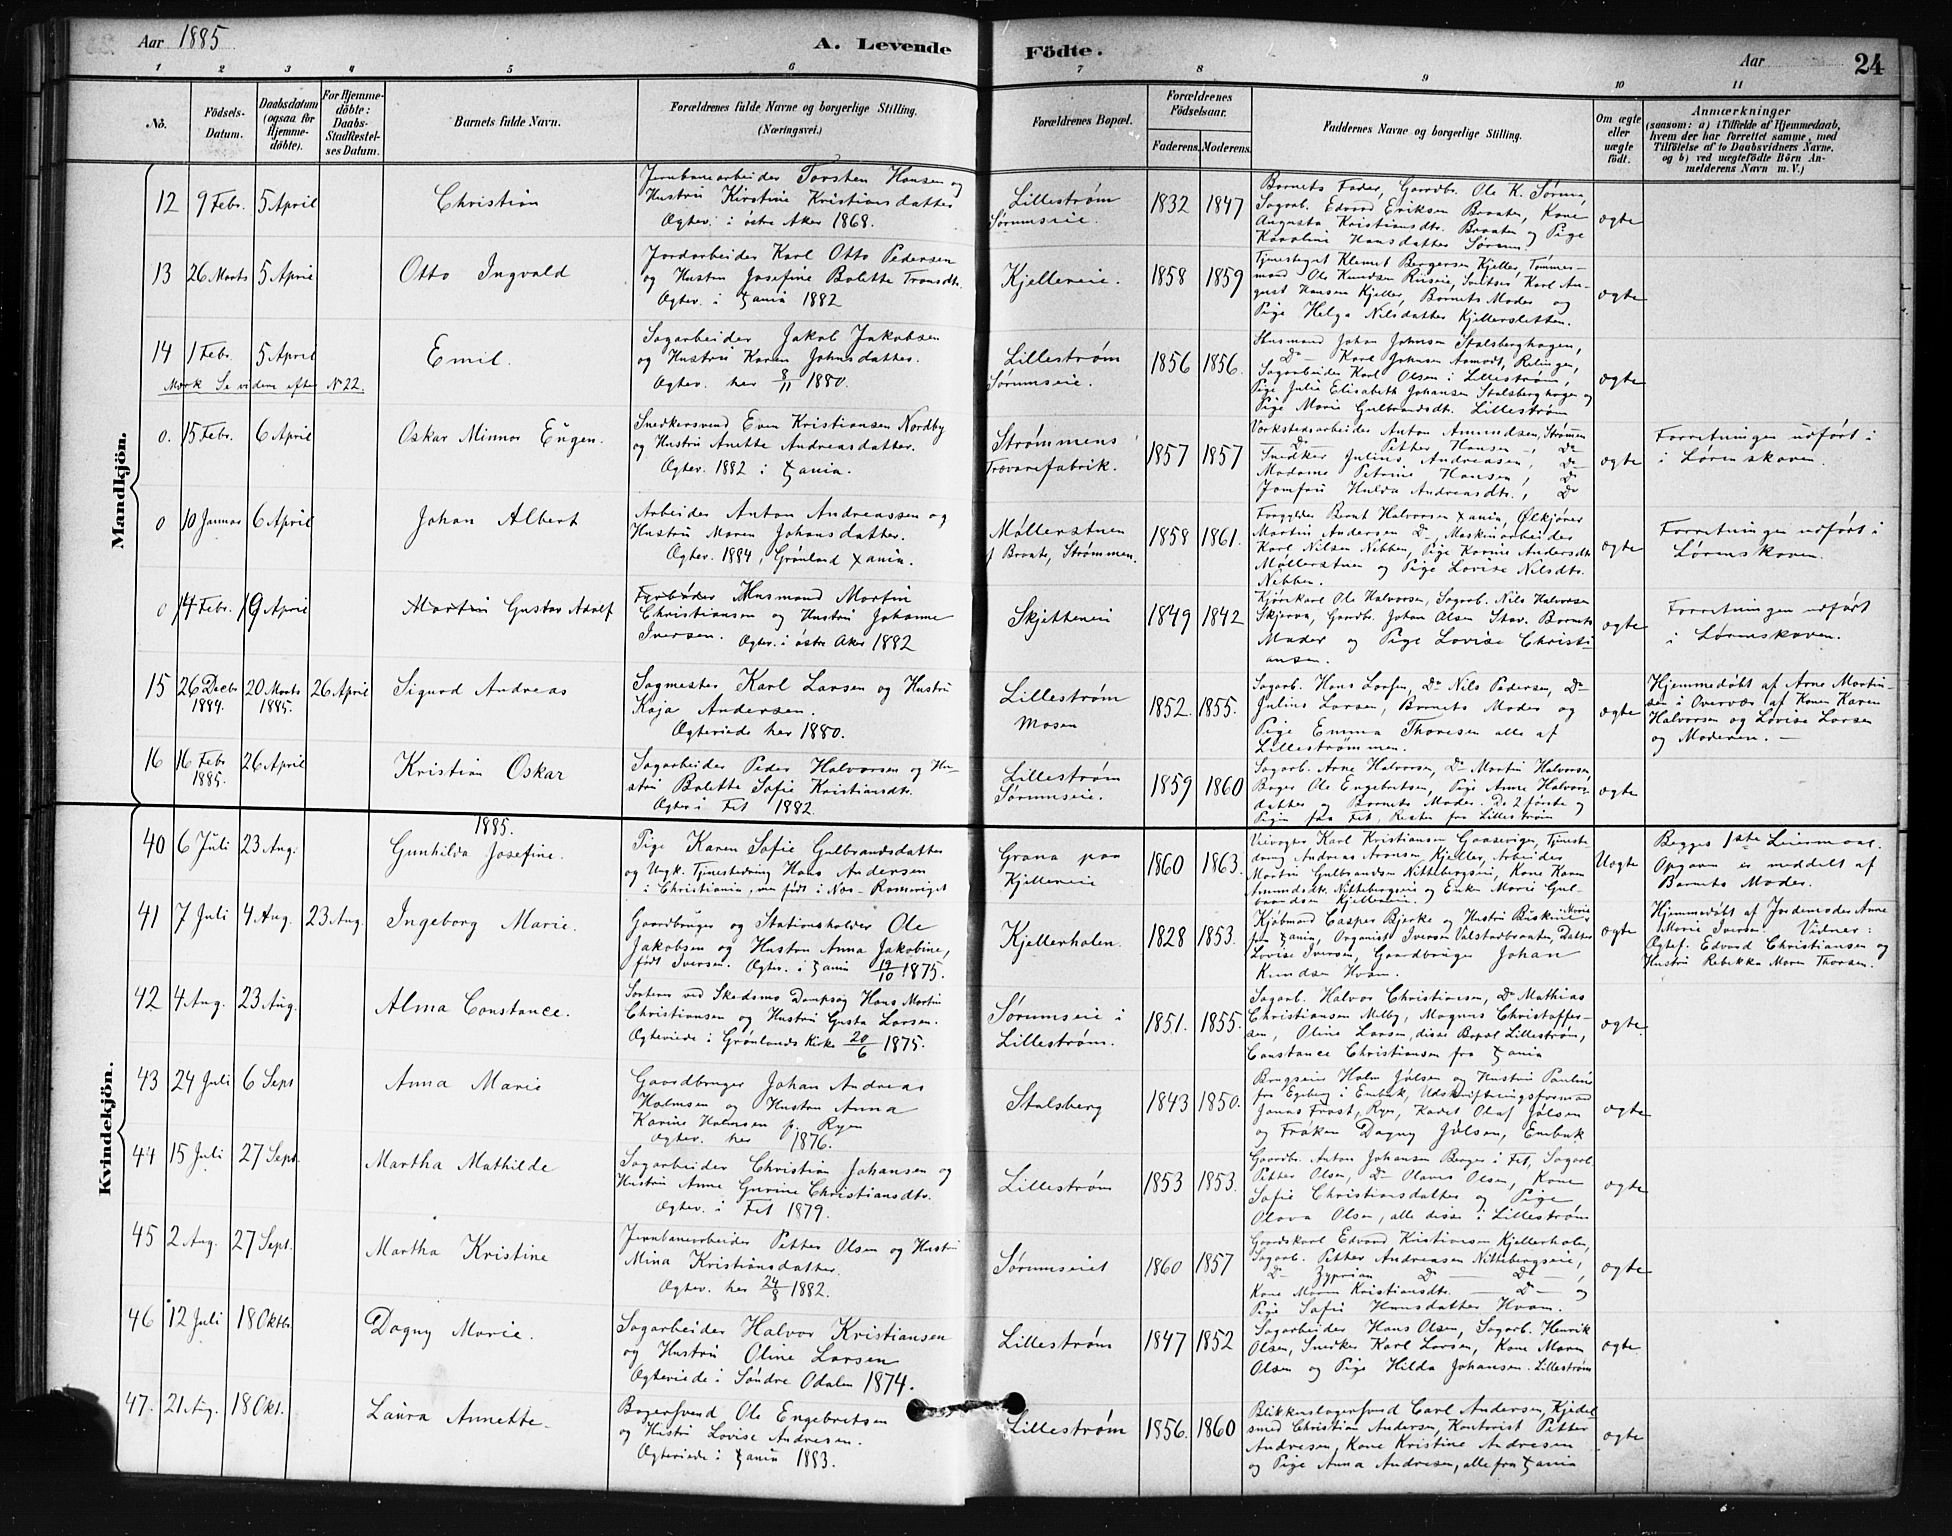 Aar 1885
A. Levende
Födte.
Aar
24
1 2 3 4 5 6 7 8 9 10 11
No.
Födsels-
Datum.
Daabsdatum
(ogsaa for
Hjemme-
döbte).
For Hjemme-
döbte:
Daabs-
Stadfæstel-
ses Datum.
Barnets fulde Navn.
Forældrenes fulde Navne og borgerlige Stilling.
(Næringsvei.)
Forældrenes Bopæl.
Forældrenes
Födselsaar.
Faderens. Moderens.
Faddernes Navne og borgerlige Stilling.
Om ægte
eller
uægte
födt.
Anmærkninger
(saasom: a) i Tilfælde af Hjemmedaab,
hvem der har forrettet samme, med
Tilföielse af to Daabsvidners Navne.
og b) ved uægtefödte Börn An-
melderens Navn m. V.)
Mandkjön.
12 9 Febr. 5 April
Christian
Jernbanearbeider Torsten Hansen og
Hustru Kirstine Kristiansdatter
Ægtev. i østre Aker 1868.
Lillestrøm
Sørumseie.
1832 1847
Barnets Fader, Gaardbr. Ole K. Sørum,
Sagarb. Edvard Eriksen Braaten, Kone
Augusta Kristiansdtr. Braaten og Pige
Karoline Hansdatter Sørum.
ægte
13 26 Marts 5 April
Otto Ingvald
Jordarbeider Karl Otto Pedersen
og Hustru Josefine Bolette Transdtr.
Ægtev. i Xania 1882
Kjellereie.
1858 1859
Tjenestegut Klemet Bergersen Kjeller, Tømmer-
mand Ole Knudsen Riiseie, Karl Au-
gust Hansen Kjeller, Barnets Moder og
Pige Helga Nilsdatter Kjellersletten.
ægte
14 1 Febr. 5 April
Emil.
Sagarbeider Jakob Jakobsen
og Hustru Karen Johnsdatter.
Ægtev. her 8/11 1880.
Lillestrøm
Sørumseie.
1856 1856.
Husmand Johan Johnsen Stalsberghagen,
Do Karl Johnsen Aamodt, Relingen,
Sagarbeider Karl Olsen i Lillestrøm,
Pige Julie Elisabeth Johansen Stalsberghagen og
Pige Marie Gulbrandsdt. Lillestrøm
ægte
Mærk Se videre efter N 22.
0. 15 Febr. 6 April
Oskar Minnor Eugen.
Snedkersvend Even Kristiansen Nordby
og Hustru Anette Andreasdatter.
Ægtev. 1882 i Xania.
Strømmens
Trævarefabrik.
1857 1857
Værkstedsarbeider Anton Amundsen, Strømmen
Do Petter Hansen, Do
Snedker Julius Andreasen, Do
Madame Petrine Hansen, Do
Jomfru Hulda Andreasdtr., Do
ægte
Forretningen udført i
i Lørenskoven.
0 10 Januar 6 April
Johan Albert
Arbeider Anton Andreassen og
Hustru Maren Johansdatter.
Ægtev. 1884, Grønland Xania.
Møllerstuen
f Braate, Strømmen.
1858 1861.
Forgylder Bernt Halvorsen Xania, Ølkjører
Martin Andersen Do, Maskinarbeider
Karl Nilsen Nebben, Pige Karine Andersdtr
Møllerstuen og Pige Lovise Nilsdtr.
Nebben.
ægte
Forretningen udført i
Lørenskoven.
0 14 Febr. 19 April
Martin Gustav Adolf
Fyrbøder Husmand Martin
Christiansen og Hustru Johanne
Iversen. Ægtev. i østre Aker 1882
Skjetteneie
1849 1842
Kjørekarl Ole Halvorsen, Sagarb. Nils Halvorsen
Skjerva, Gaardb. Johan Olsen Stav. Barnets
Moder og Pige Lovise Christi-
ansen.
ægte
Forretningen udført
i Lørenskoven.
15 26 Decbr 1884. 20 Marts 1885. 26 April
Sigurd Andreas
Sagmester Karl Larsen og Hustru
Kaja Andersen.
Ægteviede her 1880.
Lillestrøm
Mosen
1852. 1855.
Sagarb. Hans Larsen, Do Nils Pedersen, Do
Julius Larsen, Barnets Moder og
Pige Emma Thoresen alle af
Lillestrømmen.
ægte
Hjemmedøbt af Arne Martin-
sen i Overvær af Konen Karen
Halvorsen og Lovise Larsen
og Moderen. —
16 16 Febr 1885. 26 April
Kristian Oskar
Sagarbeider Peder Halvorsen og Hu-
stru Bolette Sofie Kristiansdtr.
Ægtev i Fet 1882.
Lillestrøm
Sørumseie.
1859 1860
Sagarb. Arne Halvorsen, Do Martin Halvorsen,
Bager Ole Engebretsen, Pige Anne Halvors-
datter og Barnets Moder. De 2 første og
Pigen fra Fet, Resten fra Lillestrøm
ægte
Kvindekjön.
1885.
40 6 Juli 23 Aug.
Gunhilda Josefine.
Pige Karen Sofie Gulbrandsdatter
og Ungk. Tjenestedreng Hans Andersen
i Christiania, født i
Grana paa
Kjellereie
1860 1863.
Veivogter Karl Kristiansen Gaaseviger, Tjeneste
dreng Andreas Arnesen Kjeller, Arbeider
Martin Gulbrandsen Nittebergseie, Kone Karen
Amundsdtr. Nittebergseie og Enke Marie Gul-
brandsen Kjellereie.
Uægte
Begges 1ste Leiermaal.
Opgaven er meddelt af
Barnets Moder.
41 7 Juli 4 Aug. 23 Aug.
Ingeborg Marie.
Gaardbruger og Stationsholder Ole
Jakobsen og Hustru Anna Jakobine,
født Iversen. Ægtev. i Xania 19/10 1875.
Kjellerholen.
1828 1853.
Kjøbmand Casper Bjerke og Hustru Marie
fra Xania, Organist Iversen Valstadbraaten, Datter
Lovise Iversen, Gaardbruger Johan
Knudsen Hvam.
ægte
Hjemmedøbt af Jordemoder Anne
Marie Iversen Vidner:
Ægtef. Edvard Christiansen og
Hustru Rebekka Maren Thorsen.
42 4 Aug. 23 Aug.
Alma Constance.
Sorterer ved Skedsmo Dampsag Hans Martin
Christiansen og Hustru Gusta Larsen.
Ægteviede i Grønlands Kirke 20/6 1875.
Sørumseie i
Lillestrøm.
1851. 1855.
Sagarb. Halvor Christiansen, Do Mathias
Christiansen Melby, Magnus Christoffer-
sen, Oline Larsen, disse Bopæl Lillestrøm,
Constance Christiansen fra Xania
ægte
43 24 Juli 6 Sept
Anna Marie
Gaardbruger Johan Andreas
Holmsen og Hustru Anna
Karine Holmsen f. Ryen
Ægtev. her 1876.
Stalsberg
1843 1850.
Brugseier Holm Jølsen og Hustru Pauline
fra Egeberg i Enebak, Udskiftningsformand
Jonas Frost, Ryen, Kadet Olaf Jølsen
og Frøken Dagny Jølsen, Enebak
ægte
44 15 Juli 27 Sept.
Martha Mathilde
Sagarbeider Christian Johansen og
Hustru Anne Gurine Christiansdtr.
Ægtev. i Fet 1879.
Lillestrøm
1853 1853.
Gaardbr. Anton Johansen Berger i Fet, Sagarb.
Petter Olsen, Do Olaves Olsen, Kone
Sofie Christiansdatter og Pige
Olava Olsen, alle disse i Lillestrøm
ægte
45 2 Aug. 27 Sept.
Martha Kristine
Jernbanearbeider Petter Olsen og Hustru
Mina Kristiansdatter.
Ægtev. her 24/8 1882.
Sørumseiet
1860 1857
Gaardskarl Edvard Kistiansen Kjellerholen,
Sagarb. Petter Andreasen Nittebergseie,
Do Zyprian Do — Do —,
Kone Maren Kristiansdtr. — Do — og
Pige Sofie Hansdatter Hvam.
ægte
46 12 Juli 18 Oktbr
Dagny Marie.
Sagarbeider Halvor Kristiansen
og Hustru Oline Larsen
Ægteviede i Søndre Odalen 1874.
Lillestrøm
1847 1852
Sagarbeider Hans Olsen, Sagarb. Henrik
Olsen, Snedker Karl Larsen, Kone Maren
Olsen og Pige Hilda Johansen. Lillestrøm
ægte
47. 21 Aug. 18 Okt.
Laura Annette.
Bagersvend Ole Engebretsen
og Hustru Lovise Andresen.
Ægteviede i Xania 1883.
Lillestrøm
1856. 1860
Blikkenslagersvend Carl Andersen, Kjedel-
smed Christian Andersen, Kontorist Petter
Andresen, Kone Kristine Andresen
og Pige Anna Andresen, alle fra Xania
ægte